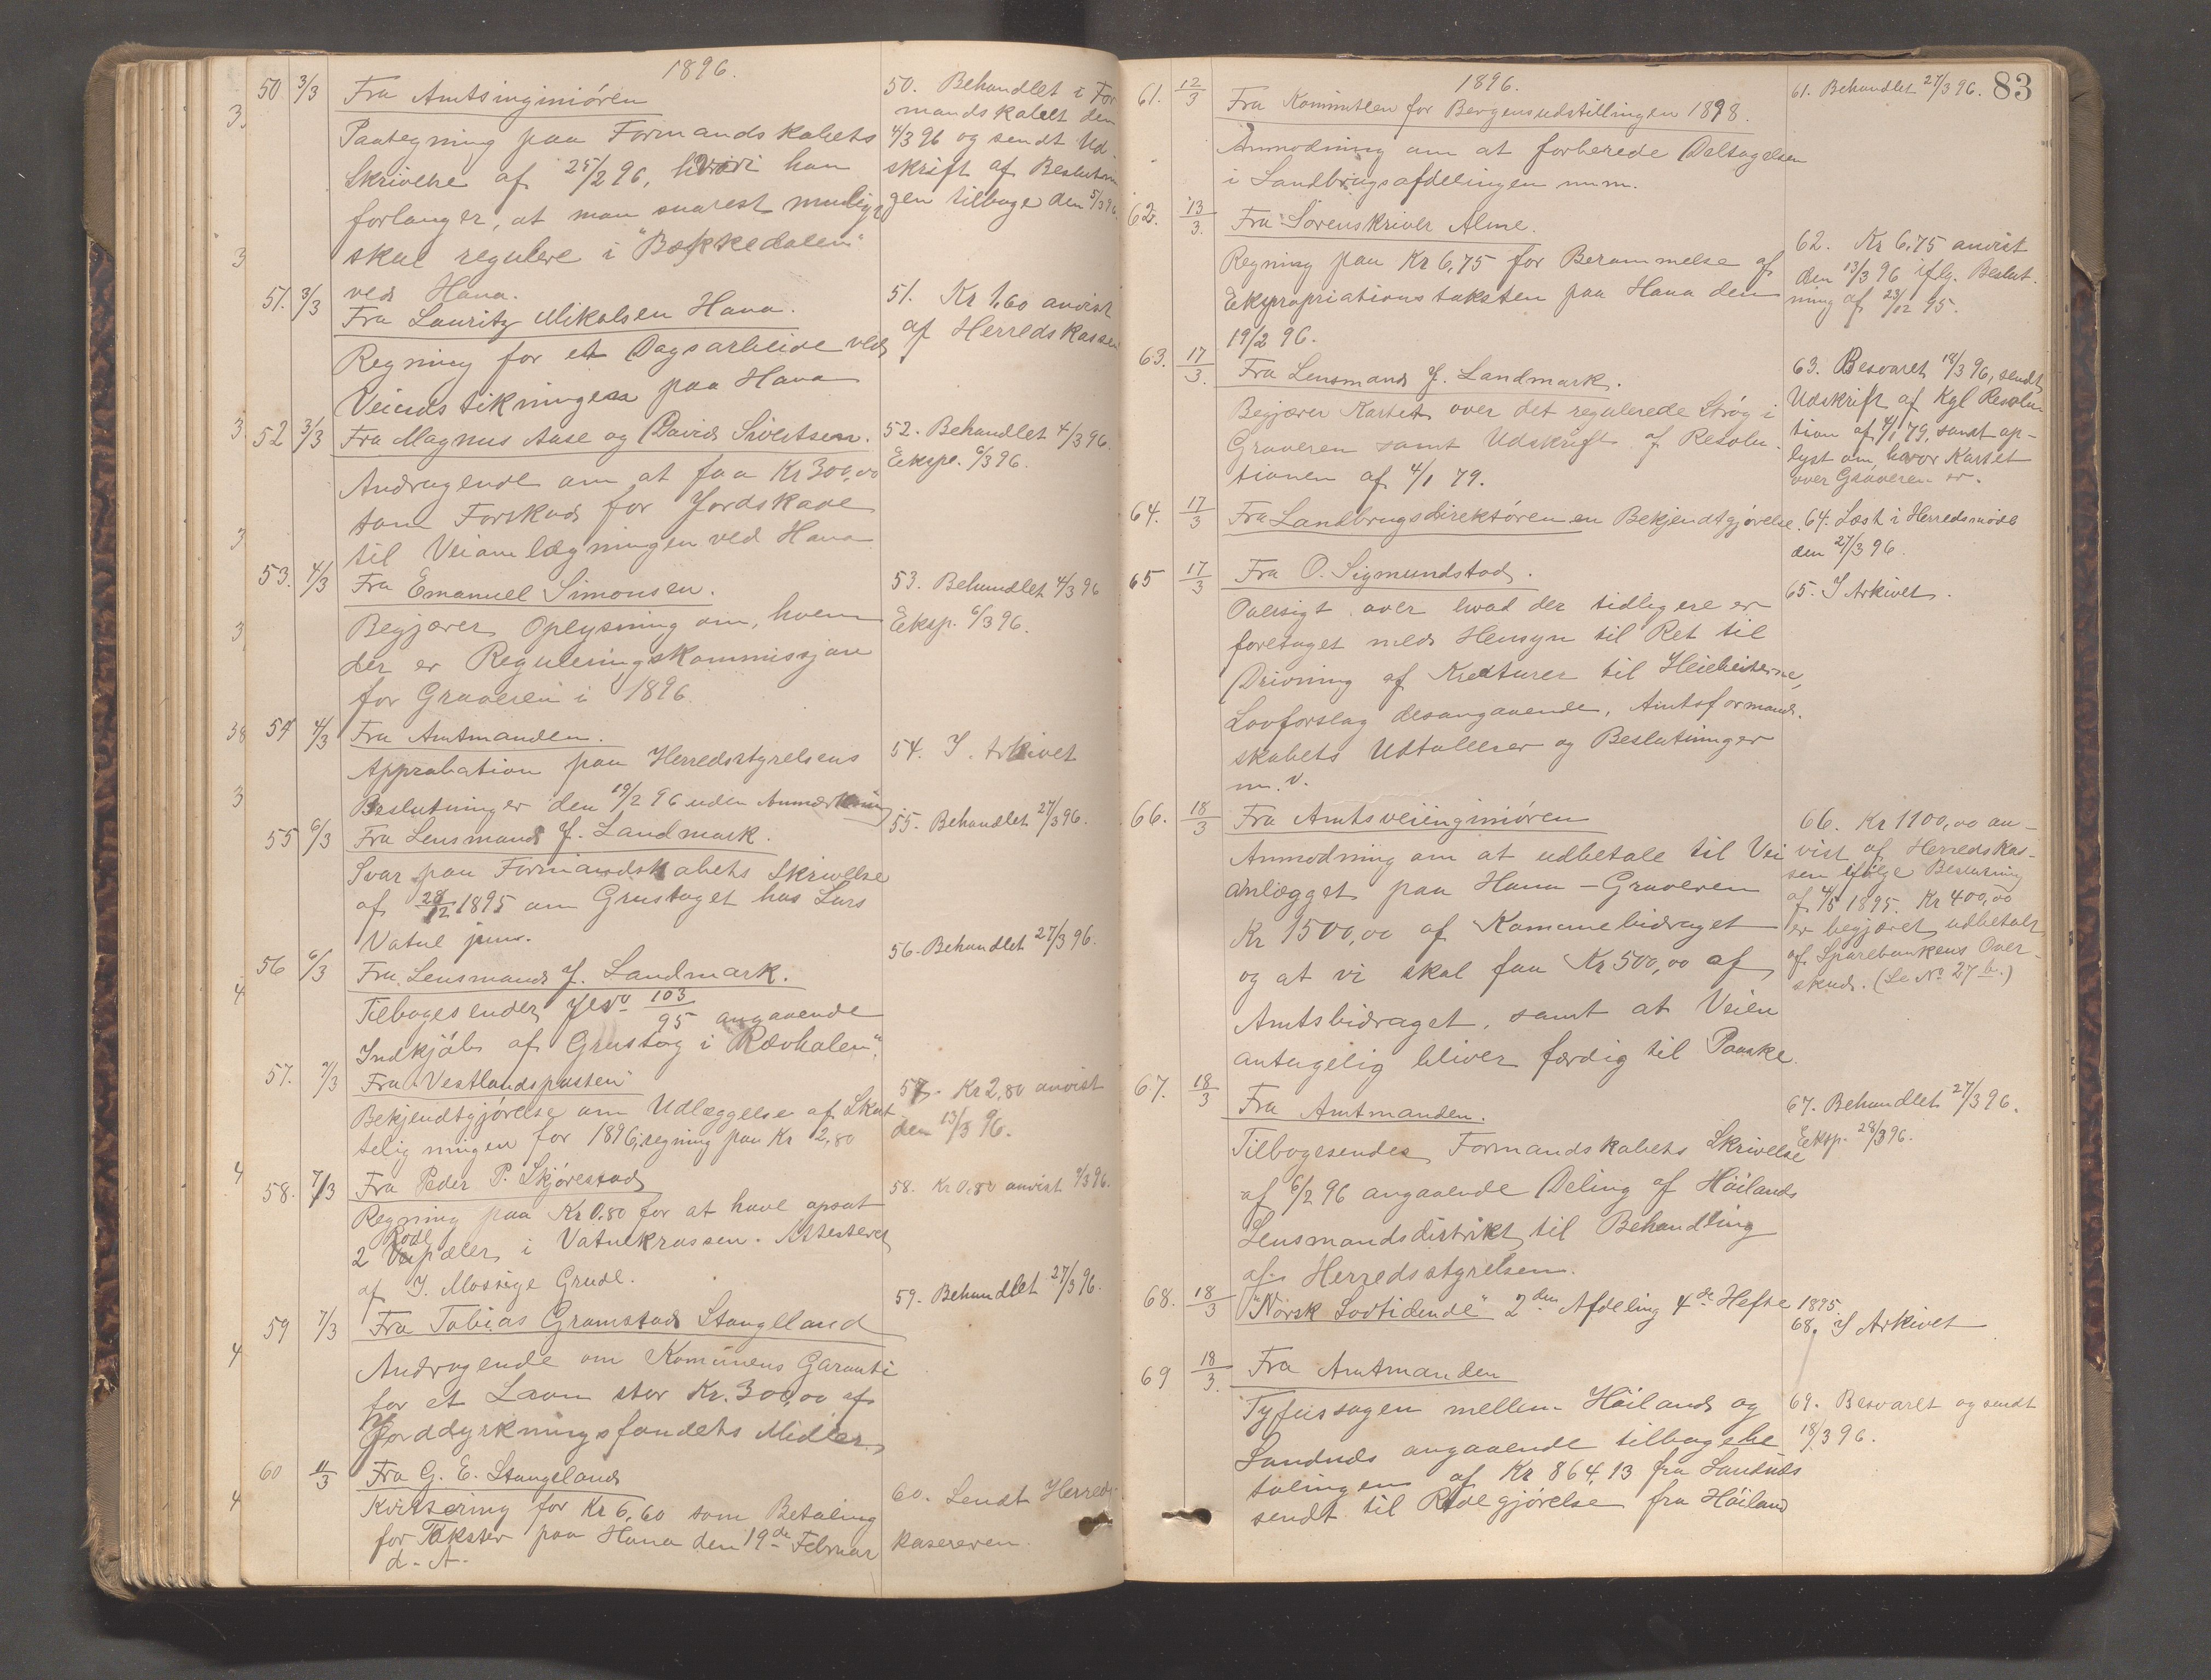 1896.
50 3/3 Fra Amtsinginiören
Paategning paa Formandskabets
Skrivelse af 25/2 96, hvori han
forlanger, at man snarest muligt
skal regulere i "Bækkedalen"
ved Hana.
50. Behandlet i For
mandskabet den
4/3 96 og sendt Ud-
skrift af Beslutnin
gen tilbage den 5/3 96.
51. 3/3 Fra Lauritz Mikalsen Hana.
Regning for et Dagsarbeide ved
Veiudstikningen paa Hana
51. Kr 1,60 anvist
af Herredskassen
52 3/3 Fra Magnus Aase og David Sivertsen.
Andragende om at faa Kr 300,00
som Forskud for Jordskade
til Veianlægningen ved Hana
52. Behandlet 4/3 96.
Ekspe. 6/3 96.
53. 4/3 Fra Emanuel Simonsen.
Begjærer Oplysning om, hvem
der er Reguleringskommissjon
for Graveren i 1896.
53. Behandlet 4/3 96
Eksp. 6/3 96.
54 4/3 Fra Amtmanden.
Approbation paa Herredsstyrelsens
Beslutninger den 19/2 96 uden Anmærkning
54. I Arkivet
55 6/3 Fra Lensmand J. Landmark.
Svar paa Formandskabets Skrivelse
af 28/12 1895 om Grustaget hos Lars
Vatne jun.
55. Behandlet 27/3 96.
56 6/3 Fra Lensmand J. Landmark.
Tilbagesender 103/95 angaaende
Indkjöb af Grustag i "Rævhalen".
56. Behandlet 27/3 96.
57. 7/3 Fra "Vestlandsposten"
Bekjendtgjörelse om Udlæggelse af Skat
teligningen for 1896, regning paa Kr 2,80
57. Kr 2,80 anvist
den 13/3 96.
58. 7/3 Fra Peder P. Skjörestad
Regning paa Kr 0.80 for at have opsat
2 Rodepæler i Vatnekrossen. Attesteret
af I. Mossige Grude.
58. Kr 0,80 anvist 9/3 96.
59 7/3 Fra Tobias Gramstad Stangeland
Andragende om Komunens Garanti
for et Laan stor Kr. 300,00 af
Jorddyrkningsfondets Midler.
59. Behandlet 27/3 96.
60 11/3 Fra G. E. Stangeland
Kvittering for Kr 6,60 som Betaling
for Takster paa Hana den 19de Februar
d. A.
60. Sendt Herreds-
kasereren.
83
1896.
61. 12/3 Fra Komiteen for Bergensudstillingen 1898.
Anmodning om at forberede Deltagelsen
i Landbrugsafdelingen m.m.
61. Behandlet 27/3 96.
62. 13/3. Fra Sorenskriver Alme.
Regning paa Kr 6,75 for Berammelse af
Ekspropriationstaksten paa Hana den
19/2 96.
62. Kr 6,75 anvist
den 13/3 96 iflg. Beslut-
ning af 28/12 95.
63. 17/3. Fra Lensmand J. Landmark.
Begjærer Kartet over det regulerede Strög i
Graveren samt Udskrift af Resolu-
tionen af 4/1 79.
63. Besvaret 18/3 96, sendt
Udskrift af Kgl Resolu
tion af 4/1 79, samt op-
lyst om hvor Kartet
over Graveren er.
64. 17/3 Fra Landbrugsdirektören en Bekjendtgjörelse.
64. Læst i Herredsmöde
den 27/3 96.
65 17/3 Fra O. Sigmundstad.
Oversigt over hvad der tidligere er
foretaget med Hensyn til Ret til
Drivning af Kreaturer til Heiebeiterne,
Lovforslag desangaaende, Amtsformand-
skabets Udtalelser og Beslutninger
m. v.
65. I Arkivet.
66. 18/3 Fra Amtsveiinginiören
Anmodning om at udbetale til Vei
anlægget paa Hana - Graveren
Kr 1500,00 af Komunebidraget
og at vi skal faa Kr 500,00 af
Amtsbidraget, samt at Veien
antagelig bliver færdig til Paaske.
66. Kr 1100,00 an-
vist af Herredskas-
sen ifölge Beslutning
af 4/5 1895. Kr 400,00
er begjæret udbetalt
af Sparebankens Over-
skud. (Se No 27 b.)
67. 18/3 Fra Amtmanden.
Tilbagesendes Formandskabets Skrivelse
af 6/2 96 angaaende Deling af Höilands
Lensmandsdistrikt til Behandling
af Herredsstyrelsen.
67. Behandlet 27/3 96.
Eksp. 28/3 96.
68. 18/3 "Norsk Lovtidende" 2den Afdeling 4de Hefte 1895.
68. I Arkivet
69 18/3. Fra Amtmanden
Tyfussagen mellem Höiland og
Sandnes angaaende tilbagebe
talingen af Kr 864,13 fra Sandnes
sendt til Redegjörelse fra Höiland
69. Besvaret og sendt
18/3 96.